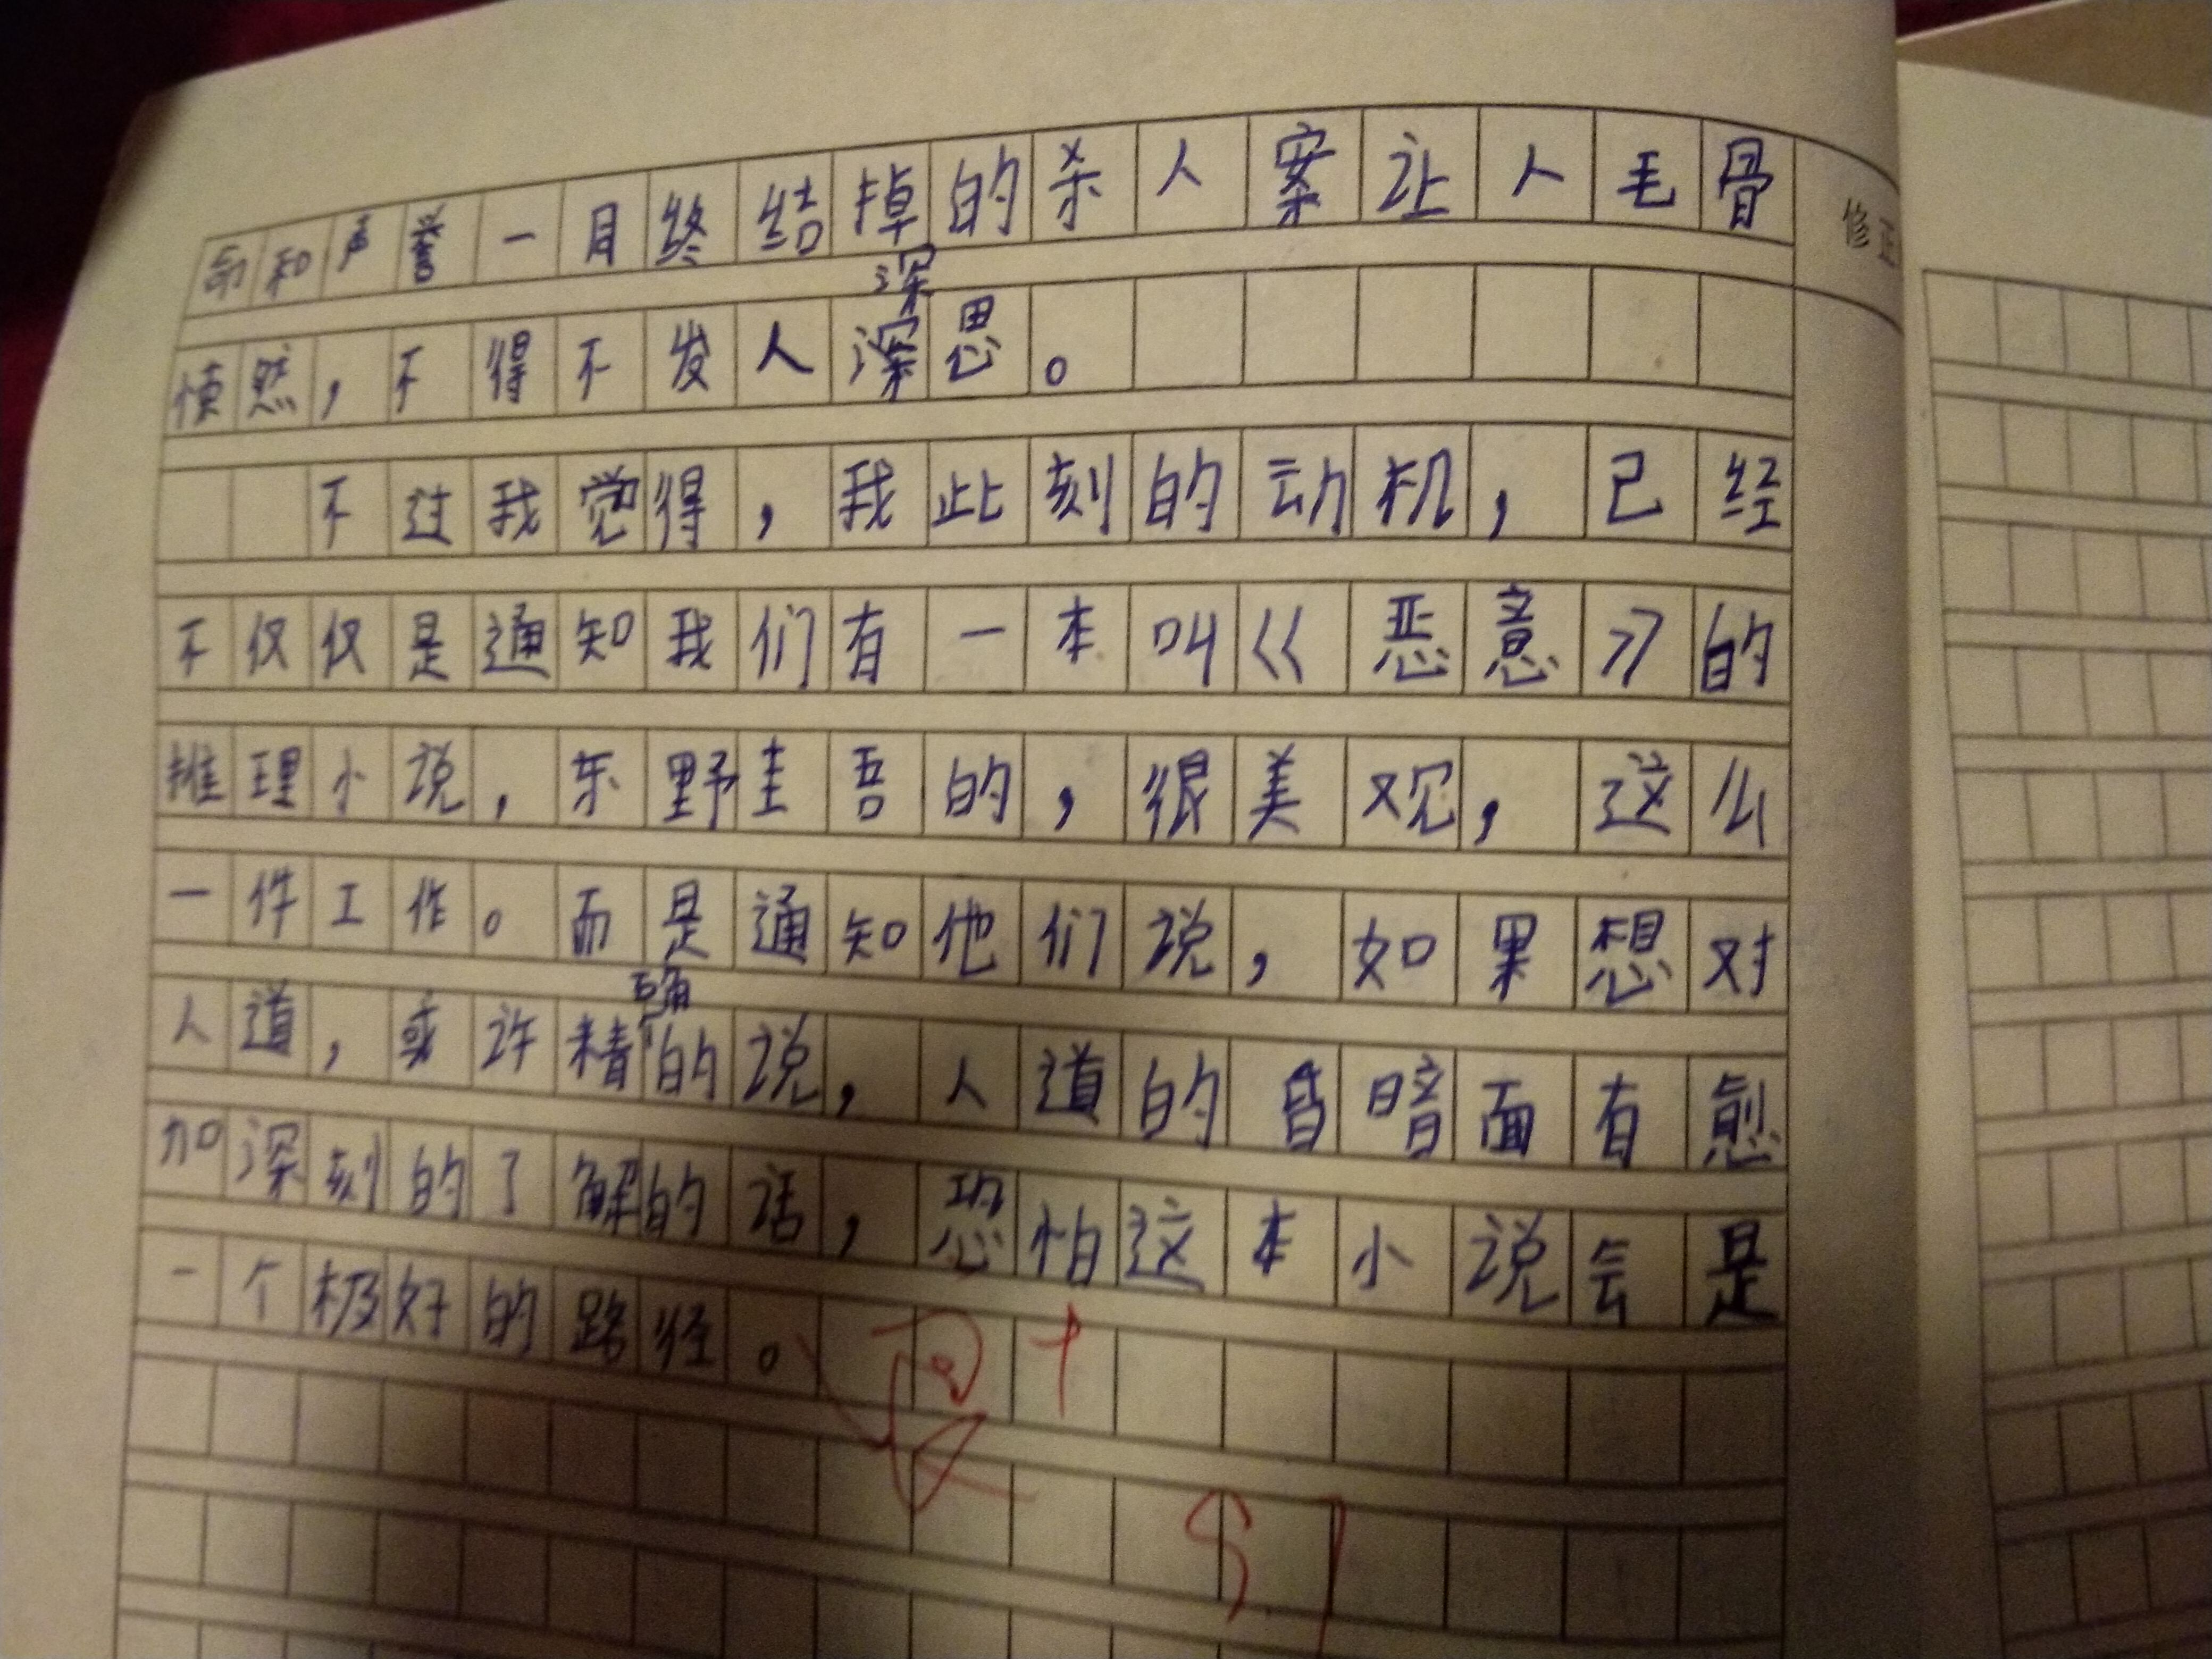 命和声誉一月终结掉的杀人案让人毛骨
修正
深
愤然，不得不发人深思。
不过我觉得，我此刻的动机，已经
不仅仅是通知我们有一本叫《恶意》的
推理小说，东野圭吾的，很美观，这么
一件工作。而是通知他们说，如果想对
确
人道，或许精的说，人道的昏暗面有愈
加深刻的了解的话，恐怕这本小说会是
一个极好的路径。
91